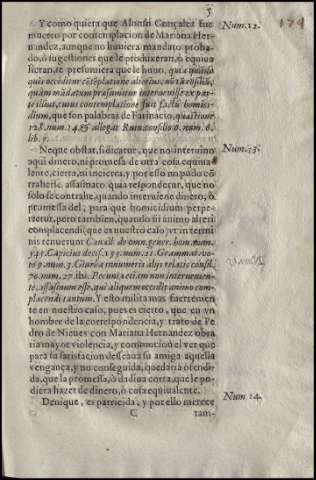 5
Y como quiera que Alonso Gonçalez fue
muerto por contemplacion de Mariana Her-
nandez, aunque no huviera mandato proba-
do, ò sugestiones que le produxeran, ò equiva-
lieran, se presumiera que le huvo, quia quando
quis occiditur cõtemplatione alterius,
quàm mãdatum præsumitur intercessisse ex par-
te illius, cuius contemplatione fuit factũ homici-
dium, que son palabras de Farinacio, quæstione
128. num. 14. & allegat Ruin. consilio num. 6.
lib. 5.
Num. 12.
179
Neque obstat, si dicatur, que no intervino
aqui dinero, ni promesa de otra cosa equiva-
lente, cierta, ni incierta, y por esso no pudo cõ-
traherse assasinato quia responderur, que no
solo se contrahe, quando interviene dinero, ò
promessa del, para que homicidium perpe-
tretur, pero tambien, quando sit animo alteri
complacendi (que es nuestro caso) vt in termi-
nis tenuerunt Canall. de omn. gener. hom. num.
545. Capicius decis. 155. num. 21. Grammat. vo-
to 9. num. 3. Giurba innumeris alijs relatis consil.
70. num. 27. ibi: Pecunia etiam non intervenien-
te, assasinum esse, qui aliquem occidit animo com-
placendi tantum. Y esto milita mas fuertemen-
te en nuestro caso, pues es cierto, que en vn
hombre de la correspondencia, y trato de Pe-
dro de Nieves con Mariana Hernandez obra-
ria mayor violencia, y conmocion el ver que
para su satisfacion desseava su amiga aquella
vengança, y no conseguida, quedaria ofendi-
da, que la promessa, ò dadiva corta, que le pu-
diera hazer de dinero, ò cosa equivalente.
Num. 13.
Denique, es parricida, y por ello merece
Num. 14.
C tam-